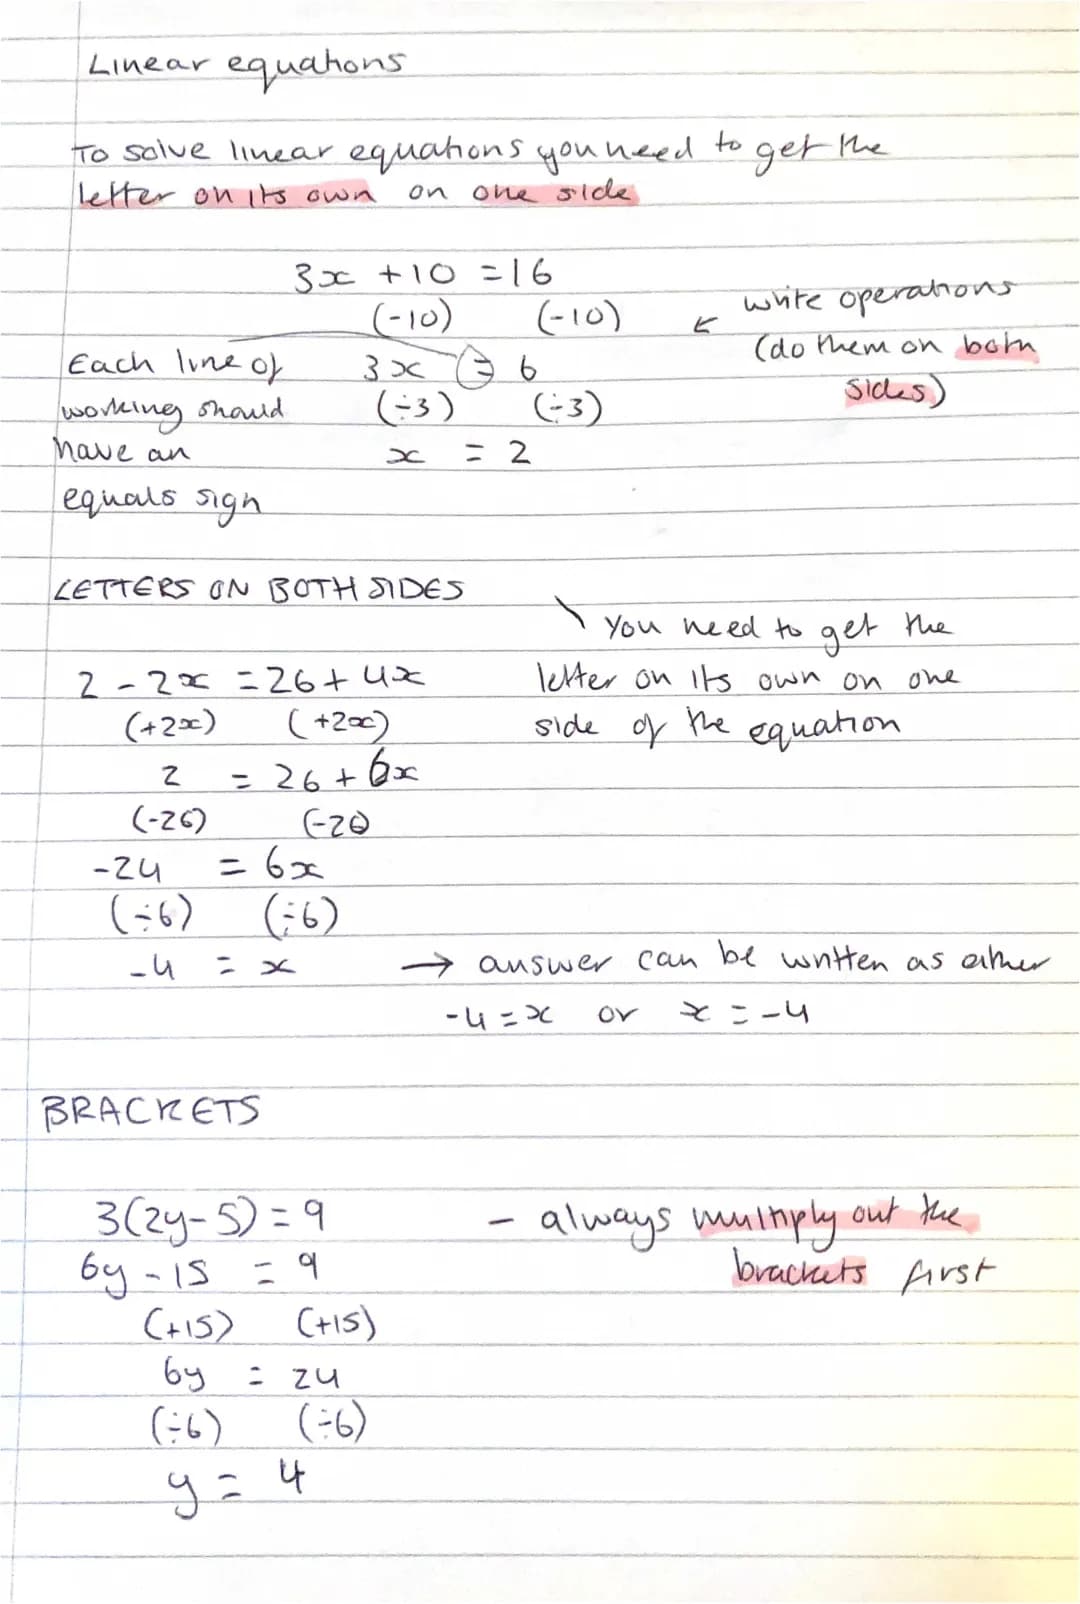 Linear equations
To solve linear equations you need to get the
letter on its own on one side
3x + 10 = 16
(-10) (-10)
← write operations
(do them on both
sides)
Each line of
working should
have an
equals sign
3x = 6
(÷3) (÷3)
x = 2
LETTERS ON BOTH SIDES
\ You need to get the
letter on its own on one
side of the equation
2 - 2x = 26 + 4x
(+2x) (+2x)
2 = 26 + 6x
(-26) (-26)
-24 = 6x
(÷6) (÷6)
-4 = x
→ answer can be written as either
-4 = x or x = -4
BRACKETS
3(2y-5) = 9
- always multiply out the
brackets first
6y - 15 = 9
(+15) (+15)
6y = 24
(÷6) (÷6)
y = 4